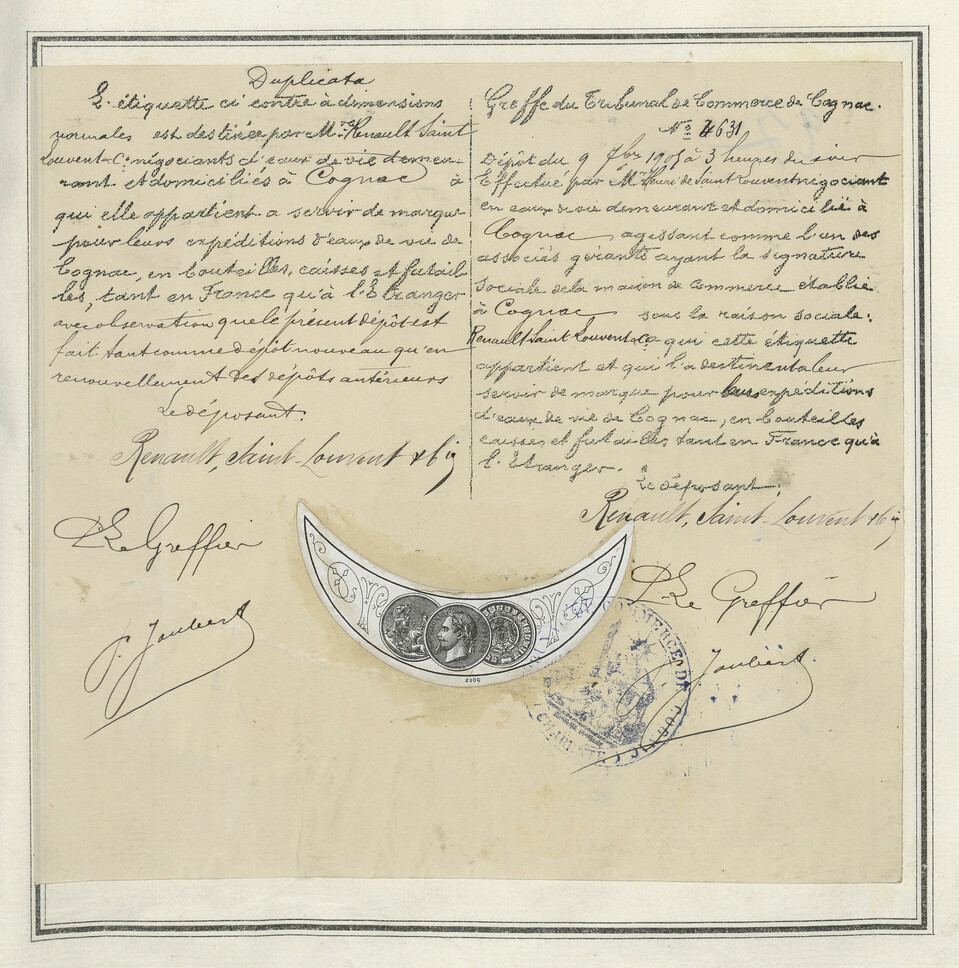 Duplicata
L'étiquette ci contre à dimensions
normales est destinée par Mrs Renault Saint
Louvent & Cie négociants d'eaux de vie demeu-
rant et domiciliés à Cognac à
qui elle appartient a servir de marque
pour leurs expéditions d'eaux de vie de
Cognac, en bouteilles, caisses et futail
les, tant en France qu'à l'Etranger
avec observation que le présent dépôt est
fait tant comme dépôt nouveau qu'en
renouvellement des dépôts antérieurs
Le déposant.
Renault, Saint-Louvent & Cie
Le Greffier
J. Joubert
Greffe du Tribunal de Commerce de Cognac.
No 4631
Dépôt du 9 7bre à 3 heures du soir
Effectué par Mr Henri de Saint Louvent négociant
en eaux de vie demeurant et domicilié à
Cognac agissant comme l'un des
associés gérants ayant la signature
sociale de la maison de Commerce établie
à Cognac sous la raison sociale:
Renault Saint Louvent & Co à qui cette étiquette
appartient et qui l'a destinent a leur
servir de marque pour leurs expéditions
d'eaux de vie de Cognac, en bouteilles
caisses et futailles tant en France qu'à
l'Etranger.
Le déposant.
Renault, Saint-Louvent & Cie
Le Greffier
J. Joubert.
COMMERCE DE COGNAC
(CHARENTE)